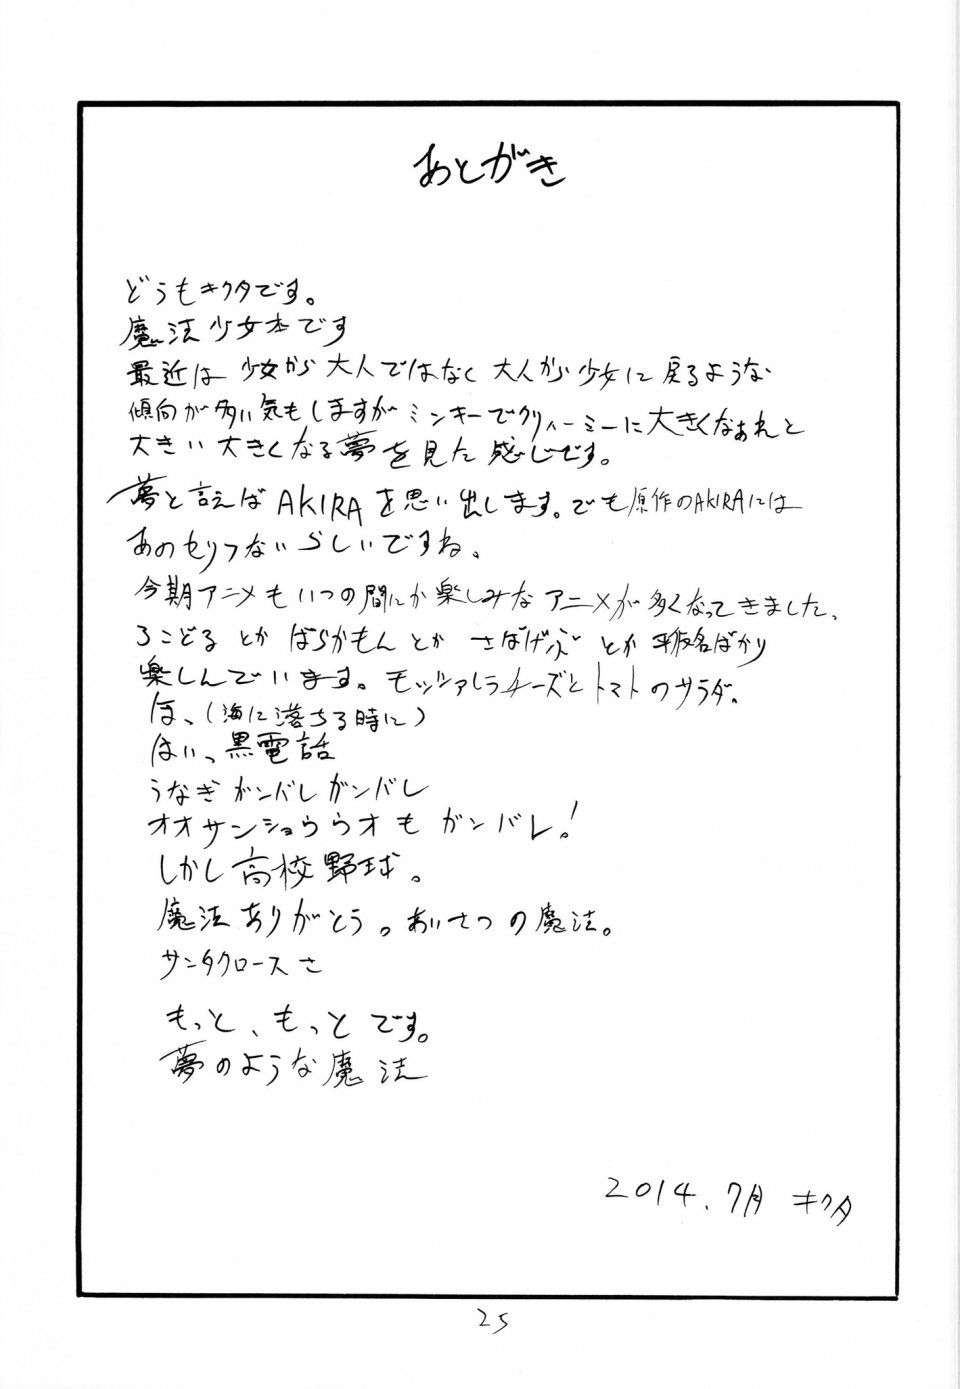 あとがき
どうもキクタです。
魔法少女本です
最近は 少女から 大人ではなく 大人から少女に 戻るような
傾向が多い気もしますが ミンキーでクリィーミーに大きくなぁれと
大きい 大きくなる夢を見た 感じです。
夢と言えばAKIRAを思い出します。でも原作のAKIRAには
あのセリフないらしいですね、
今期アニメもいつの間にか楽しみなアニメが多くなってきました、
ろこどる とか ばらかもん とか さばげぶ とか 平仮名ばかり
楽しんでいます。モッツァレラチーズとトマトのサラダ。
ほ、(海に落ちる時に)
はいっ黒電話
うなぎ ガンバレ ガンバレ
オオサンショウウオも ガンバレ!
しかし高校野球。
魔法ありがとう。あいさつの魔法。
サンタクロース さ
もっと、もっとです。
夢のような魔法
2014.7月 キクタ
25